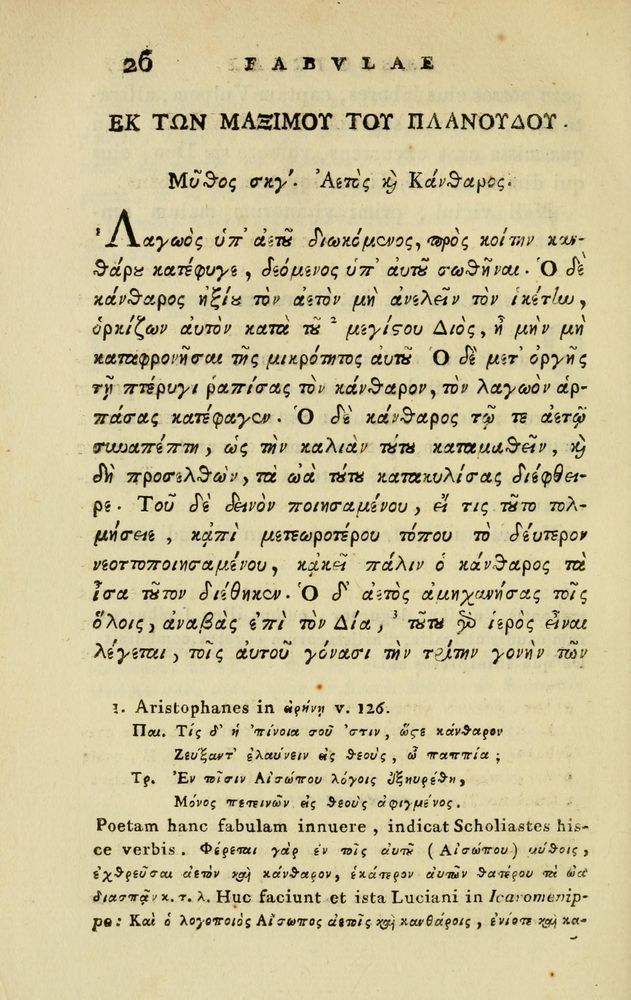 26 FABVLAE
ΕΚ ΤΩΝ ΜΑΞΙΜΟΥ ΤΟΥ ΠΛΑΝΟΥΔΟΥ.
Μῦθος σκγ΄. Ἀετὸς καὶ Κάνθαρος.
¹Λαγωὸς ὑπ' ἀετοῦ διωκόμενος, πρὸς κοίτην καν-
θάρου κατέφυγε, δεόμενος ὑπ' αὐτοῦ σωθῆναι. Ὁ δὲ
κάνθαρος ἠξίου τὸν ἀετὸν μὴ ἀνελεῖν τὸν ἱκέτην,
ὁρκίζων αὐτὸν κατὰ τοῦ ² μεγίστου Διὸς, ἦ μὴν μὴ
καταφρονῆσαι τῆς μικρότητος αὐτοῦ Ὁ δὲ μετ' ὀργῆς
τῇ πτέρυγι ῥαπίσας τὸν κάνθαρον, τὸν λαγωὸν ἁρ-
πάσας κατέφαγεν. Ὁ δὲ κάνθαρος τῷ τε ἀετῷ
συναπέπτη, ὡς τὴν καλιὰν τούτου καταμαθεῖν, καὶ
δὴ προσελθὼν, τὰ ὠὰ τούτου κατακυλίσας διέφθει-
ρε. Τοῦ δὲ δεινὸν ποιησαμένου, εἴ τις τοῦτο τολ-
μήσειε, κᾀπὶ μετεωροτέρου τόπου τὸ δεύτερον
νεοττοποιησαμένου, κᾀκεῖ πάλιν ὁ κάνθαρος τὰ
ἴσα τοῦτον διέθηκεν. Ὁ δ' ἀετὸς ἀμηχανήσας τοῖς
ὅλοις, ἀναβὰς ἐπὶ τὸν Δία, ³ τούτου γὰρ ἱερὸς εἶναι
λέγεται, τοῖς αὐτοῦ γόνασι τὴν τρίτην γονὴν τῶν
1. Aristophanes in εἰρήνῃ v. 126.
Παι. Τίς δ' ἡ 'πίνοια σοῦ 'στιν, ὥστε κάνθαρον
Ζεύξαντ' ἐλαύνειν εἰς θεοὺς, ὦ παππία;
Τρ. Ἐν τοῖσιν Αἰσώπου λόγοις ἐξηυρέθη,
Μόνος πετεινῶν εἰς θεοὺς ἀφιγμένος.
Poetam hanc fabulam innuere, indicat Scholiastes his-
ce verbis. Φέρεται γὰρ ἐν τοῖς αὐτοῦ (Αἰσώπου) μύθοις,
ἐχθρεῦσαι ἀετὸν καὶ κάνθαρον, ἑκάτερον αὐτῶν θατέρου τὰ ὠὰ
διασπᾷν κ. τ. λ. Huc faciunt et ista Luciani in Icaromenip-
pe: Καὶ ὁ λογοποιὸς Αἴσωπος ἀετοῖς καὶ κανθάροις, ἐνίοτε καὶ κα-